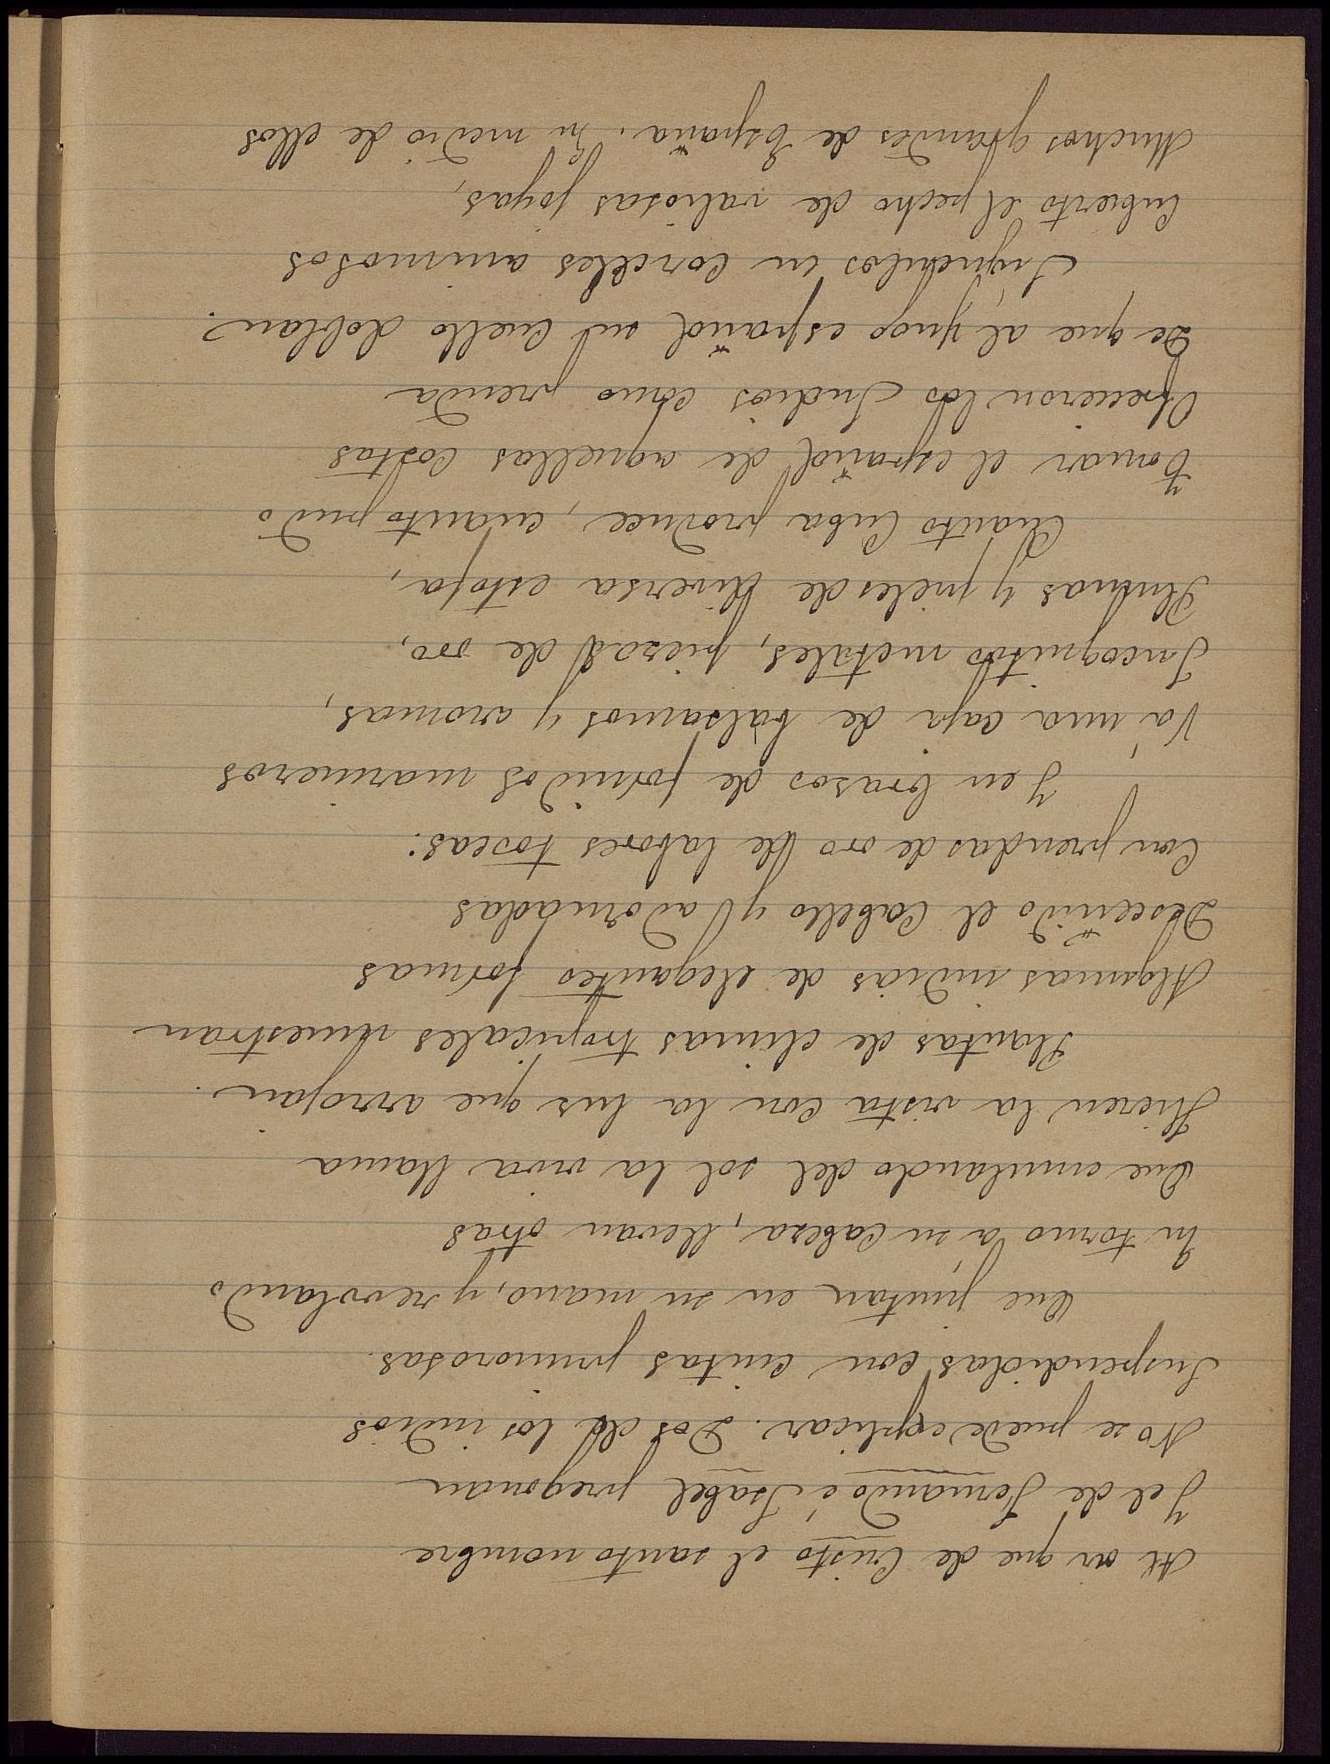 Al oir que de Cristo el santo nombre
Y el de Fernando é Isabel pregonan
No se puede esplicar. Dos de los indios
Suspendidas con cintas primorosas
Que juntan en su mano, y revolando
En torno á su cabeza, llevan otras
Que emulando del sol la viva llama
Hieren la vista con la luz que arrojan.
Plantas de climas tropicales muestran
Algunas indias de elegantes formas
Desceñido el cabello y adornadas
Con prendas de oro de labores toscas:
Y en brasos de fornidos marineros
Vá una caja de bálsamos y aromas,
Incognitos metales, piezas de oro,
Plumas y pieles de diversa estofa,
Cuanto Cuba produce, cuanto pudo
Tomar el español de aquellas costas
Ofrecieron los Indios como prenda
De que al yugo español su cuello doblan.
Siguenlos en corceles animosos
Cubierto el pecho de valiosas joyas,
Muchos grandes de España. En medio de ellos